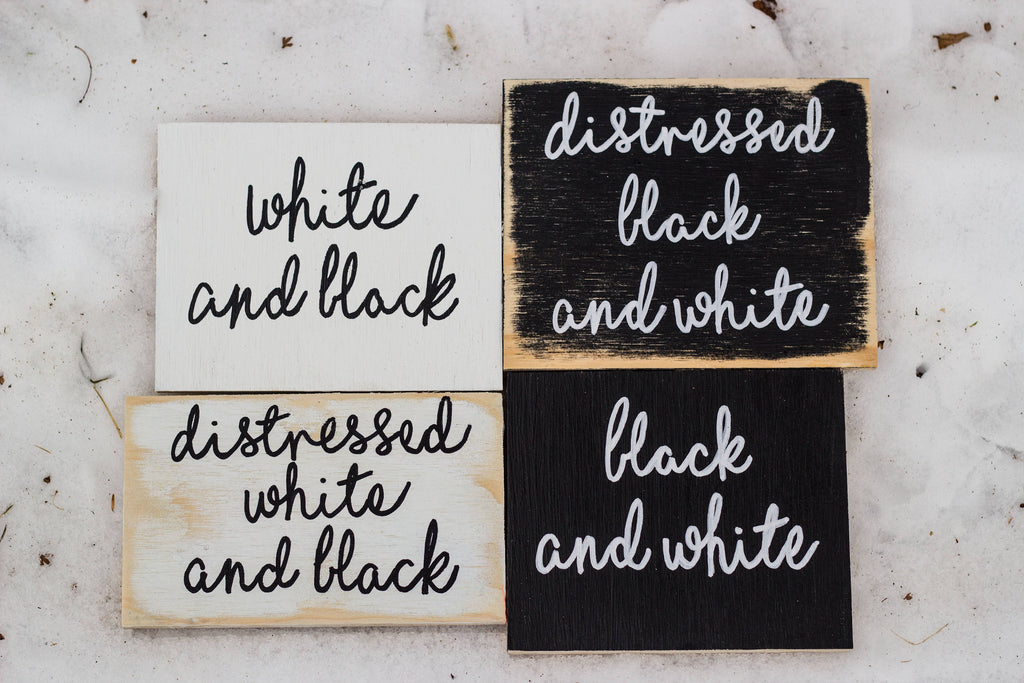 white
and black
distressed
black
and white
distressed
white
and black
black
and white